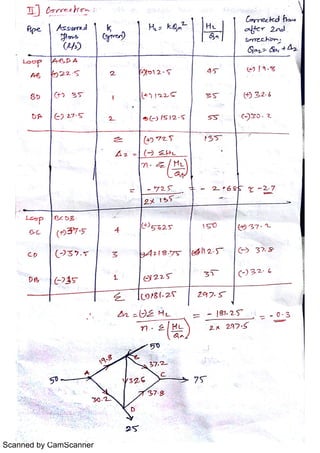 II] Correction:
Pipe | Assumed flows (l/s) | K (given) | HL = k.Qn² | HL/Qn | Corrected flow after 2nd correction, Qn2 = Qn + Δ2
Loop ABDA
AB | (+) 22.5 | 2 | (+) 1012.5 | 45 | (+) 19.8
BD | (+) 35 | 1 | (+) 1225 | 35 | (+) 32.6
DA | (-) 27.5 | 2 | (-) 1512.5 | 55 | (-) 30.2
Σ | (+) 725 | 135
Δ2 = (-) ΣHL / n. Σ(HL/Qn)
= -725 / 2x135 = - 2.685 ≈ -2.7
Loop BCDB
BC | (+) 37.5 | 4 | (+) 5625 | 150 | (+) 37.2
CD | (-) 37.5 | 3 | (-) 4218.75 | 112.5 | (-) 37.8
DB | (-) 35 | 1 | (-) 1225 | 35 | (-) 32.6
Σ | (+) 181.25 | 297.5
∴ Δ2 = (-) Σ HL / n. Σ(HL/Qn) = - 181.25 / 2 x 297.5 = - 0.3
50
19.8 B 37.2
50 A 32.6 C 75
30.2 37.8
D
25
Scanned by CamScanner